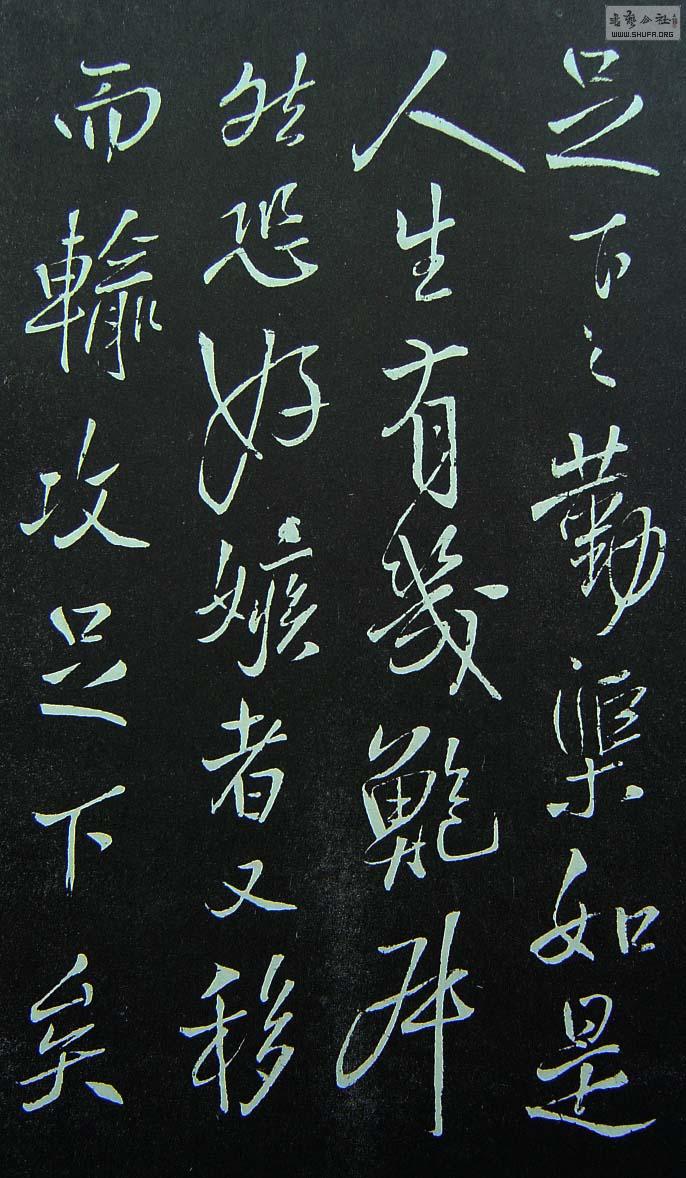 足下之勤渠如是
人生有幾鮑叔
然恐好嫉者又移
而輸攻足下矣
書藝公社
WWW.SHUFA.ORG